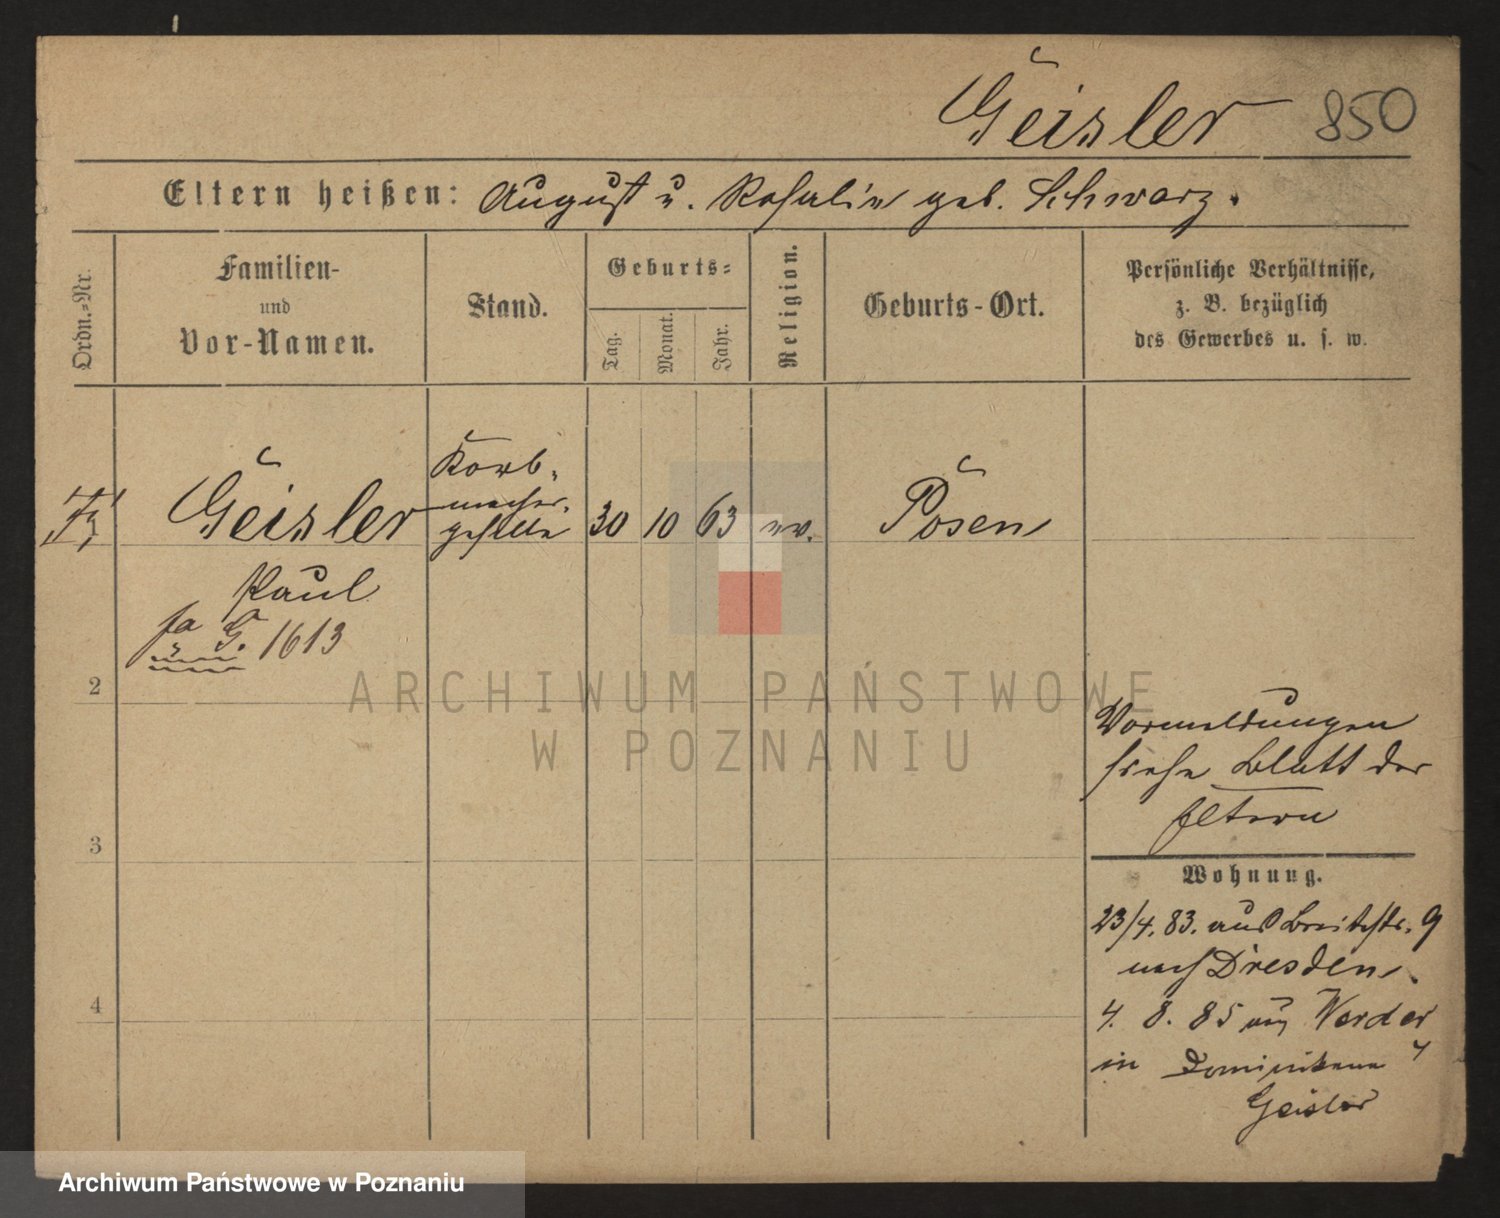 Geisler 850
Eltern heißen: August u. Rosalie geb. Schwarz.
Ordn.=Nr.
Familien-
und
Vor-Namen.
Stand.
Geburts=
Tag.
Monat.
Jahr.
Religion.
Geburts-Ort.
Persönliche Verhältnisse,
z. B. bezüglich
des Gewerbes u. s. w.
Geisler
Korb-
macher-
geselle
30 10 63 ev. Posen
Paul
G. 1613
2
Vormeldungen
siehe Blatt der
Eltern
3
Wohnung.
23/4. 83. aus Breitestr. 9
nach Dresden.
4
4. 8. 85 aus Werder
in Dominikaner 4
Geisler
ARCHIWUM PAŃSTWOWE
W POZNANIU
Archiwum Państwowe w Poznaniu